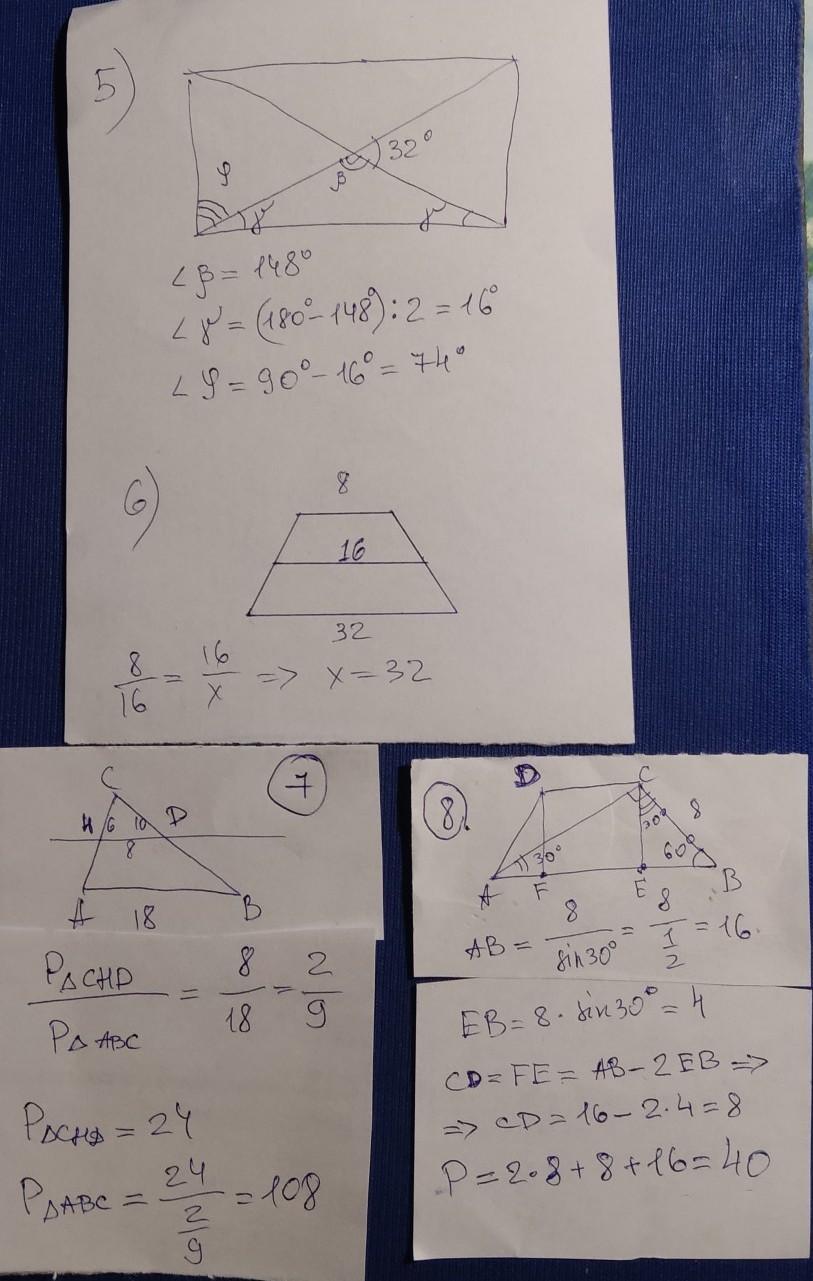 5)
φ
β
32°
γ
γ
∠β = 148°
∠γ = (180° - 148°) : 2 = 16°
∠φ = 90° - 16° = 74°
6)
8
16
32
8/16 = 16/x => x = 32
7
C
H 6 10 D
8
A 18 B
P△CHD / P△ABC = 8/18 = 2/9
P△CHD = 24
P△ABC = 24 / (2/9) = 108
8.
D C
30° 8
30° 60°
A F E B
AB = 8/sin30° = 8/(1/2) = 16.
EB = 8 · sin30° = 4
CD = FE = AB - 2EB =>
=> CD = 16 - 2·4 = 8
P = 2·8 + 8 + 16 = 40